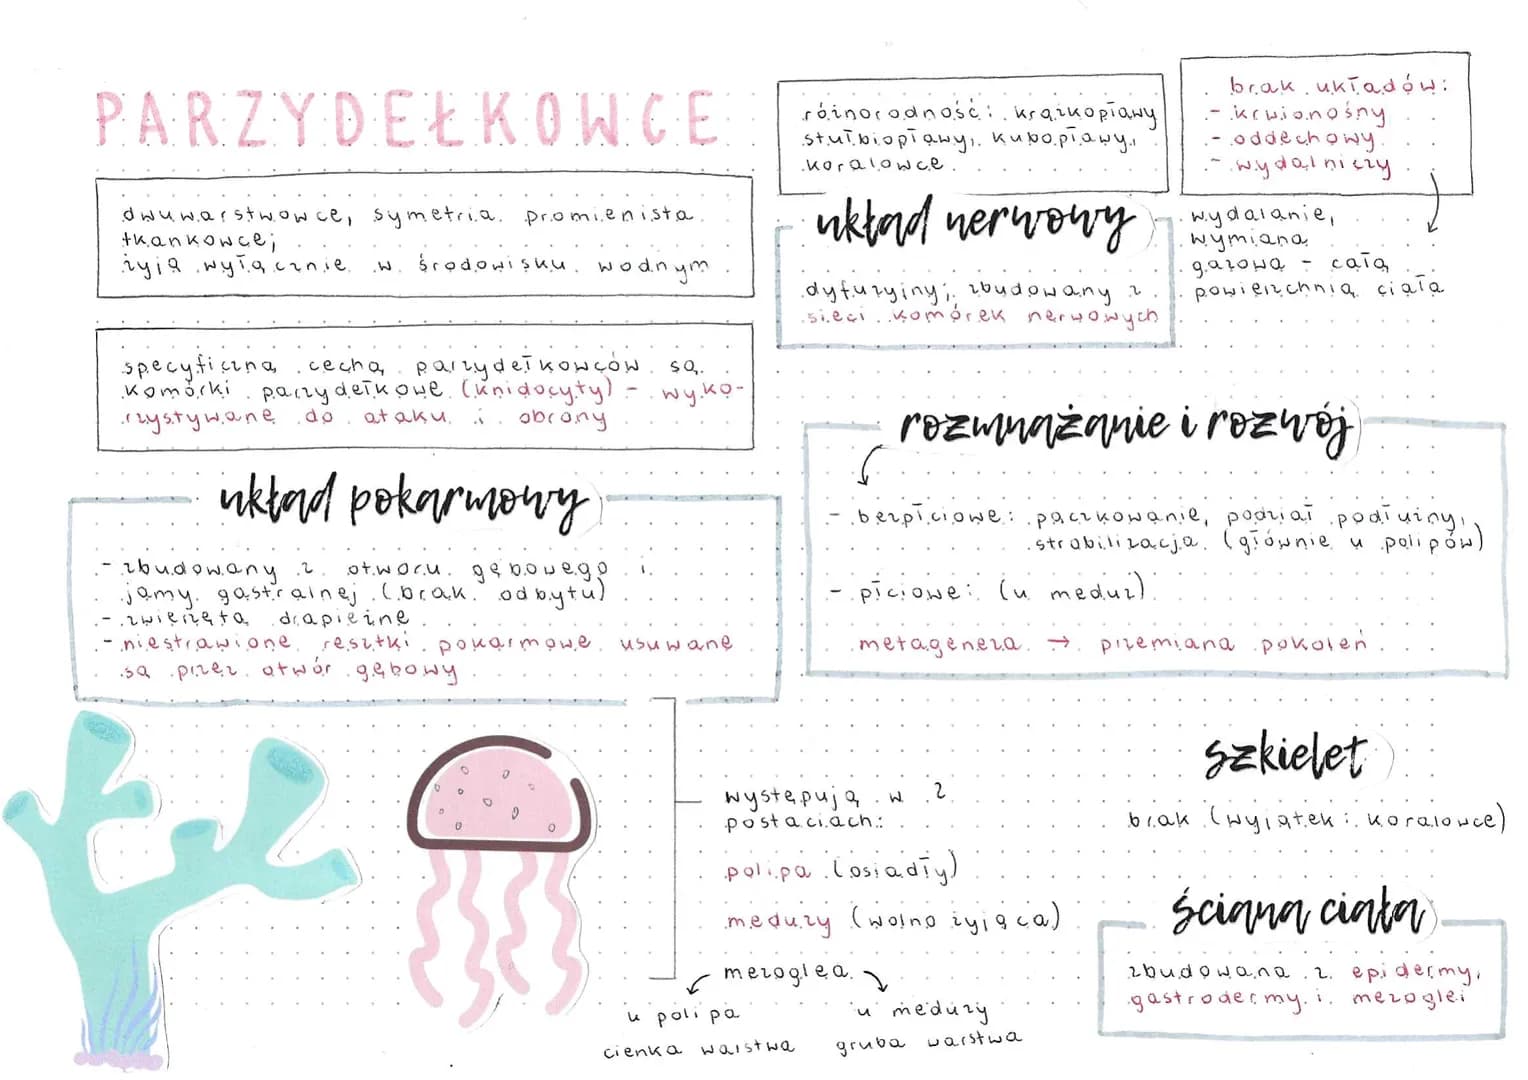 PARZYDEŁKOWCE
dwuwarstwowce, symetria promienista
tkankowce;
żyją wyłącznie w środowisku wodnym
specyficzną cechą parzydełkowców są
komórki parzydełkowe (knidocyty) - wyko-
rzystywane do ataku i obrony
układ pokarmowy
- zbudowany z otworu gębowego i
jamy gastralnej (brak odbytu)
- zwierzęta drapieżne
- niestrawione resztki pokarmowe usuwane
są przez otwór gębowy
występują w 2
postaciach:
polipa (osiadły)
meduzy (wolno żyjąca)
mezoglea
u polipa
cienka warstwa
u meduzy
gruba warstwa
różnorodność: krążkopławy
stułbiopławy, kubopławy,
koralowce
brak układów:
- krwionośny
- oddechowy
- wydalniczy
wydalanie,
wymiana
gazowa - całą
powierzchnią ciała
układ nerwowy
dyfuzyjny; zbudowany z
sieci komórek nerwowych
rozmnażanie i rozwój
- bezpłciowe: pączkowanie, podział podłużny,
strobilizacja (głównie u polipów)
- płciowe: (u meduz)
metageneza → przemiana pokoleń
szkielet
brak (wyjątek: koralowce)
ściana ciała
zbudowana z epidermy,
gastrodermy i mezoglei